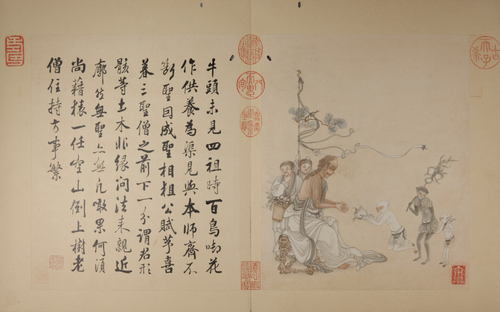 牛頭未見四祖時百鳥啣花
作供養為渠見與本師齊不
斷聖因成聖相祖公賦芧喜
暮三聖僧之前下一分謂若形
骸等土木非緣問法來親近
廓然無聖亦無凡噉果何須
尚藉猿一任空山倒上樹老
僧住持方事繁